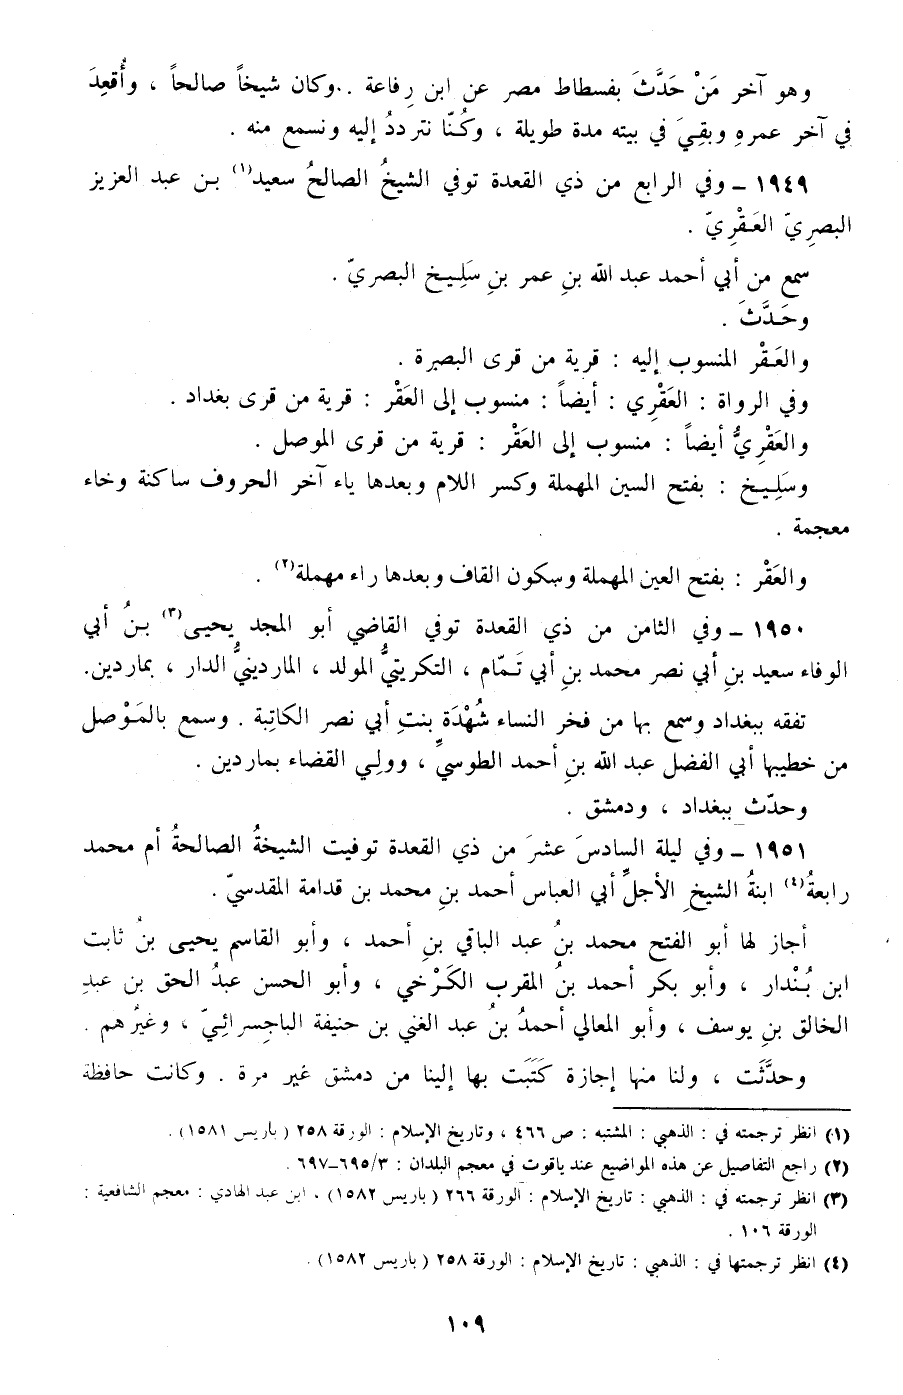 وهو آخر مَنْ حَدَّثَ بفسطاط مصر عن ابن رِفاعة . . وكان شيخاً صالحاً ، وأُقعِدَ
في آخر عمرهِ وبقِيَ في بيته مدة طويلة ، وكُنّا نترددُ إليه ونسمع منه .
١٩٤٩ ـ وفي الرابع من ذي القعدة توفي الشيخُ الصالحُ سعيد(١) بن عبد العزيز
البصرِيّ العَقْرِيّ .
سمع من أبي أحمد عبد الله بنِ عمر بنِ سَلِيخ البصريّ .
وحَدَّثَ .
والعَقْر المنسوب إليه : قرية من قرى البصرة .
وفي الرواة : العَقْري : أيضاً : منسوب إلى العَقْر : قرية من قرى بغداد .
والعَقْرِيُّ أيضاً : منسوب إلى العَقْر : قرية من قرى الموصل .
وسَلِيخ : بفتح السين المهملة وكسر اللام وبعدها ياء آخر الحروف ساكنة وخاء
معجمة .
والعَقْر : بفتح العين المهملة وسكون القاف وبعدها راء مهملة(٢) .
١٩٥٠ ـ وفي الثامن من ذي القعدة توفي القاضي أبو المجد يحيى(٣) بنُ أبي
الوفاء سعيد بنِ أبي نصر محمد بنِ أبي تَمّام ، التكريتيُّ المولد ، الماردينيُّ الدار ، بماردين.
تفقه ببغداد وسمع بها من فخر النساء شُهْدَة بنتِ أبي نصر الكاتِبة . وسمع بالمَوْصل
من خطيبها أبي الفضل عبد الله بنِ أحمد الطوسيِّ ، وولِي القضاء بماردين .
وحدّث ببغداد ، ودمشق .
١٩٥١ ـ وفي ليلة السادسَ عشرَ من ذي القعدة توفيت الشيخةُ الصالحةُ أم محمد
رابعةُ(٤) ابنةُ الشيخِ الأجلِّ أبي العباس أحمد بنِ محمد بن قدامة المقدسيّ .
أجاز لها أبو الفتح محمد بنُ عبد الباقي بنِ أحمد ، وأبو القاسم يحيى بنُ ثابت
ابن بُنْدار ، وأبو بكر أحمد بنُ المقرب الكَرْخي ، وأبو الحسن عبدُ الحق بن عبدِ
الخالق بنِ يوسف ، وأبو المعالي أحمدُ بنُ عبد الغني بن حنيفة الباجِسرائِيّ ، وغيرُهم .
وحدَّثَت ، ولنا منها إجازة كَتَبَت بها إلينا من دمشق غير مرة . وكانت حافظة
(١) انظر ترجمته في : الذهبي : المشتبه : ص ٤٦٦ ، وتاريخ الإسلام : الورقة ٢٥٨ ( باريس ١٥٨١ ) .
(٢) راجع التفاصيل عن هذه المواضيع عند ياقوت في معجم البلدان : ٣/ ٦٩٥ـ٦٩٧ .
(٣) انظر ترجمته في : الذهبي : تاريخ الإسلام : الورقة ٢٦٦ ( باريس ١٥٨٢ ) ، ابن عبد الهادي : معجم الشافعية :
الورقة ١٠٦ .
(٤) انظر ترجمتها في : الذهبي : تاريخ الإسلام : الورقة ٢٥٨ ( باريس ١٥٨٢ ) .
١٠٩